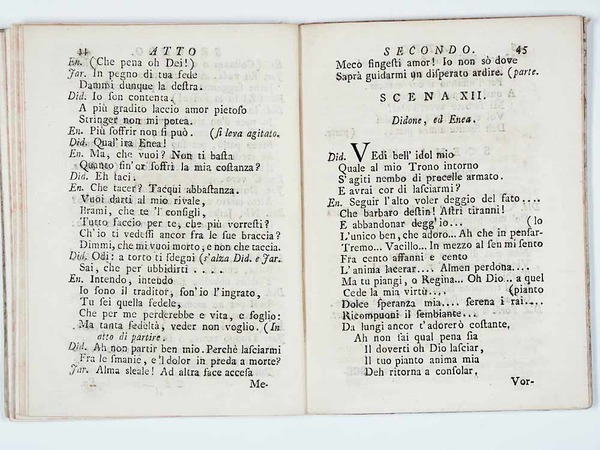 44 ATTO
En. (Che pena oh Dei!)
Jar. In pegno di tua fede
Dammi dunque la destra.
Did. Io son contenta.
A più gradito laccio amor pietoso
Stringer non mi potea.
En. Più soffrir non si può. (si leva agitato.
Did. Qual' ira Enea!
En. Ma, che vuoi? Non ti basta
Quanto fin' or soffrì la mia costanza?
Did. Eh taci.
En. Che tacer? Tacqui abbastanza.
Vuoi darti al mio rivale,
Brami, che te 'l consigli,
Tutto faccio per te, che più vorresti?
Ch'io ti vedessi ancor fra le sue braccia?
Dimmi, che mi vuoi morto, e non che taccia.
Did. Odi: a torto ti sdegni (s'alza Did. e Jar.
Sai, che per ubbidirti . . . .
En. Intendo, intendo
Io sono il traditor, son'io l'ingrato,
Tu sei quella fedele,
Che per me perderebbe e vita, e soglio:
Ma tanta fedeltà, veder non voglio. (In
atto di partire.
Did. Ah non partir ben mio. Perchè lasciarmi
Fra le smanie, e 'l dolor in preda a morte?
Jar. Alma sleale! Ad altra face accesa
Me-
SECONDO. 45
Meco fingesti amor! Io non sò dove
Saprà guidarmi un disperato ardire. (parte.
SCENA XII.
Didone, ed Enea.
Did. VEdi bell' idol mio
Quale al mio Trono intorno
S'agiti nembo di procelle armato.
E avrai cor di lasciarmi?
En. Seguir l'alto voler deggio del fato....
Che barbaro destin! Astri tiranni!
E abbandonar degg'io... (lo
L'unico ben, che adoro... Ah che in pensar-
Tremo... Vacillo... In mezzo al sen mi sento
Fra cento affanni e cento
L'anima lacerar.... Almen perdona....
Ma tu piangi, o Regina... Oh Dio.. a quel
Cede la mia virtù.... (pianto
Dolce speranza mia.... serena i rai....
Ricomponi il sembiante...
Da lungi ancor t'adorerò costante,
Ah non sai qual pena sia
Il doverti oh Dio lasciar,
Il tuo pianto anima mia
Deh ritorna a consolar.
Vor-